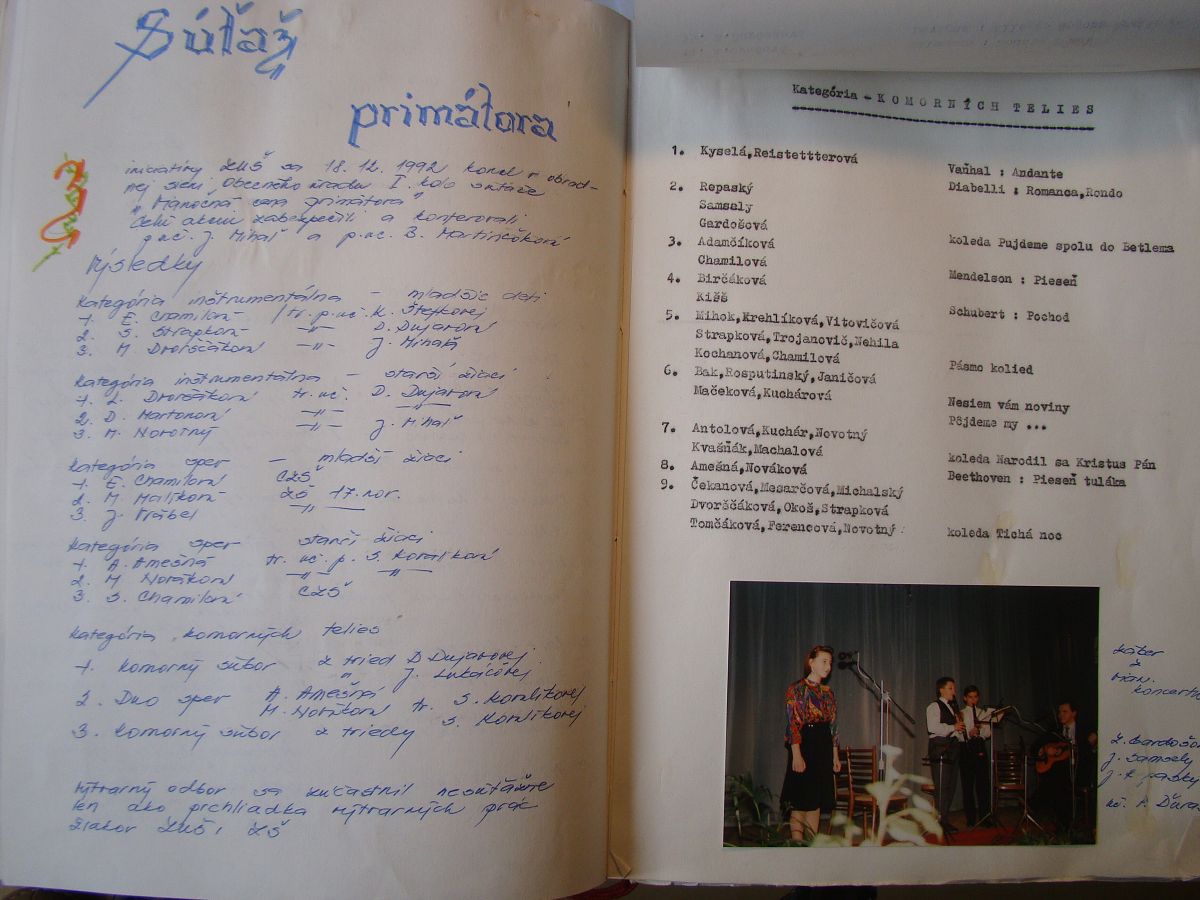 Súťaž
primátora
Z iniciatívy ZUŠ sa 18. 12. 1992 konal v obrad-
nej sieni Obecného úradu I. kolo súťaže
"Vianočná cena primátora"
Celú akciu zabezpečili a konferovali
p. uč. J. Mihaľ a p. uč. B. Martinčáková
Výsledky
Kategória inštrumentálna – mladšie deti
1. E. Chamilová /tr. p. uč. K. Štefkovej
2. S. Strapková –"– D. Dujavová
3. M. Dvorščáková –"– J. Mihaľa
Kategória inštrumentálna – starší žiaci
1. L. Dvorščáková tr. uč. D. Dujavová
2. D. Martonová –"– –"–
3. M. Novotný –"– J. Mihaľ
Kategória spev – mladší žiaci
1. E. Chamilová CZŠ
2. M. Malíková ZŠ 17. nov.
3. J. Vrábel –"–
Kategória spev starší žiaci
1. A. Amešná tr. uč. p. S. Koralíková
2. M. Nováková –"– –"–
3. S. Chamilová CZŠ
Kategória komorných telies
1. Komorný súbor z tried D. Dujavovej
" J. Lukáčovej
2. Duo spev A. Amešná
M. Nováková tr. S. Koralíkovej
3. Komorný súbor z triedy S. Koralíkovej
Výtvarný odbor sa zúčastnil nesúťažne
len ako prehliadka výtvarných prác
žiakov ZUŠ i ZŠ
Kategória - KOMORNÍCH TELIES
1. Kyselá,Reistettterová Vaňhal : Andante
Diabelli : Romanca,Rondo
2. Repaský
Samsely
Gardošová koleda Pujdeme spolu do Betlema
3. Adamčíková
Chamilová Mendelson : Pieseň
4. Birčáková
Kišš Schubert : Pochod
5. Mihok,Krehlíková,Vitovičová
Strapková,Trojanovič,Nehila
Kochanová,Chamilová Pásmo kolied
6. Bak,Rosputinský,Janičová
Mačeková,Kuchárová Nesiem vám noviny
Pôjdeme my ...
7. Antolová,Kuchár,Novotný
Kvašňák,Machalová koleda Narodil sa Kristus Pán
8. Amešná,Nováková Beethoven : Pieseň tuláka
9. Čekanová,Mesarčová,Michalský
Dvorščáková,Okoš,Strapková
Tomčáková,Ferencová,Novotný koleda Tichá noc
záber
z
vian.
koncertu
Ž. Gardošo
J. Samsely
J. Repaský